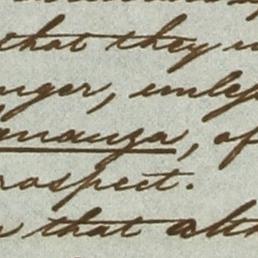 that they
nger, unless
ananza, of
rospect.
that alth